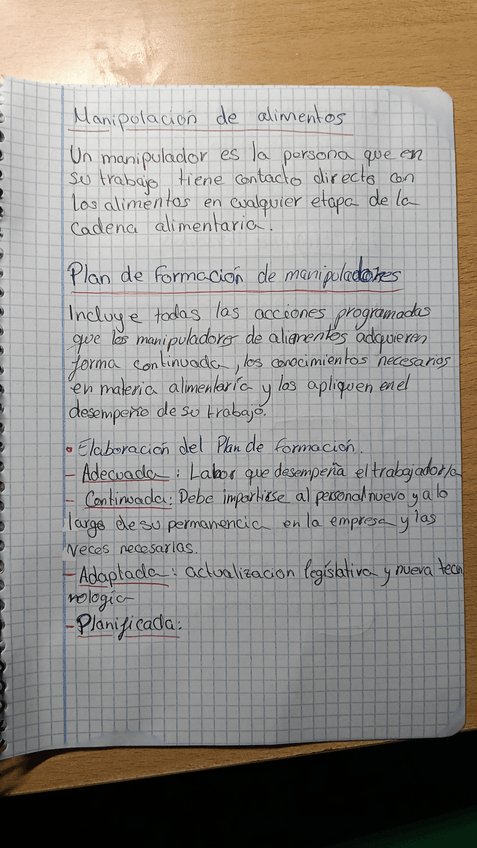 Manipulación de alimentos
Un manipulador es la persona que en
su trabajo tiene contacto directo con
los alimentos en cualquier etapa de la
cadena alimentaria.
Plan de formación de manipuladores
Incluye todas las acciones programadas
que los manipuladores de alimentos adquieren
forma continuada, los conocimientos necesarios
en materia alimentaría y los apliquen en el
desempeño de su trabajo.
• Elaboración del Plan de formación.
- Adecuada: Labor que desempeña el trabajador/a
- Continuada: Debe impartirse al personal nuevo y a lo
largo de su permanencia en la empresa y las
veces necesarias.
- Adaptada: actualizacion legislativa y nueva tecn
nologia
- Planificada: